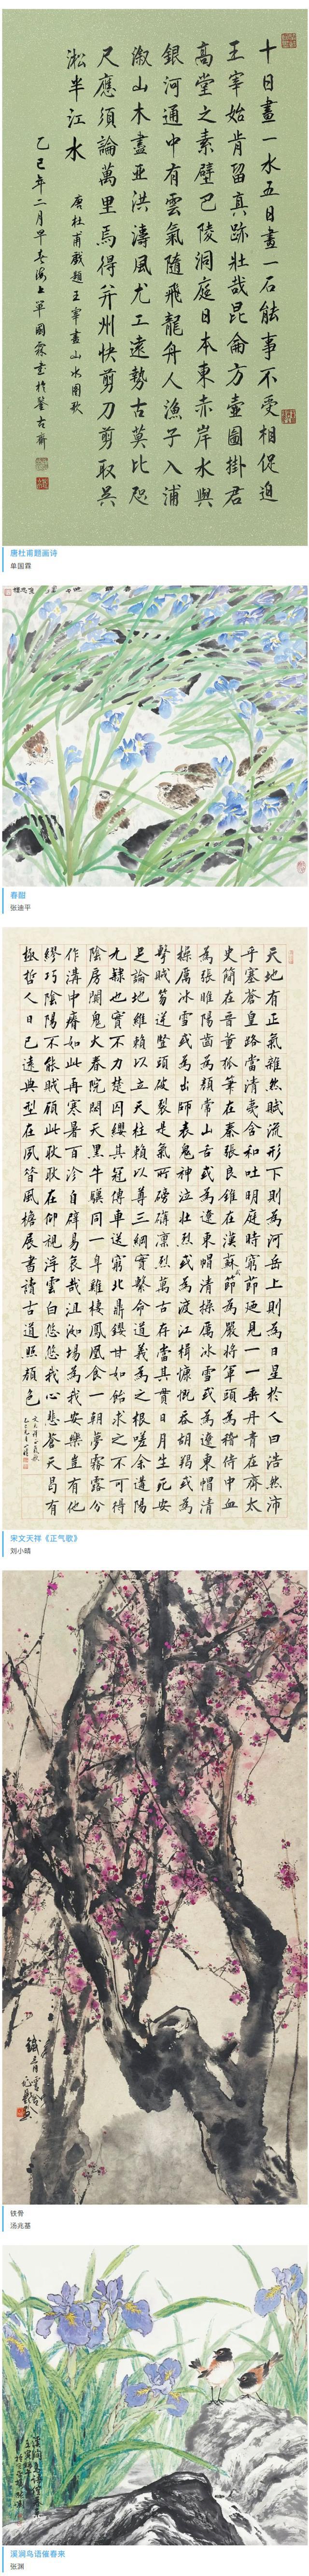 十日畫一水五日畫一石能事不受相促迫
王宰始肯留真跡壯哉昆侖方壺圖掛君
高堂之素壁巴陵洞庭日本東赤岸水與
銀河通中有雲氣隨飛龍舟人漁子入浦
漵山木盡亞洪濤風尤工遠勢古莫比咫
尺應須論萬里焉得并州快剪刀剪取吳
淞半江水
唐杜甫戲題王宰畫山水圖歌
乙巳年二月早春海上單國霖書於鑒古齋
唐杜甫题画诗
单国霖
春酣
张迪平
天地有正氣雜然賦流形下則為河岳上則為日星於人曰浩然沛
乎塞蒼皇路當清夷含和吐明庭時窮節迺見一一垂丹青在齊太
史簡在晉董狐筆在秦張良錐在漢蘇節為嚴將軍頭為嵇侍中血
為張睢陽齒為顏常山舌或為遼東帽清操厲冰雪或為遼東帽清
操厲冰雪或為出師表鬼神泣壯烈或為渡江楫慷慨吞胡羯或為
擊賊笏逆豎頭破裂是氣所磅礴凜烈萬古存當其貫日月生死安
足論地維賴以立天柱賴以尊三綱實繫命道義為之根嗟余遘陽
九隸也實不力楚囚纓其冠傳車送窮北鼎鑊甘如飴求之不可得
陰房闃鬼火春院閟天黑牛驥同一皁雞棲鳳凰食一朝夢霧露分
作溝中瘠如此再寒暑百沴自辟易哀哉沮洳場為我安樂豈有他
繆巧陰陽不能賊顧此耿耿在仰視浮雲白悠悠我心悲蒼天曷有
極哲人日已遠典型在夙昔風檐展書讀古道照顏色
宋文天祥《正气歌》
刘小晴
铁骨
汤兆基
溪涧鸟语催春来
张渊